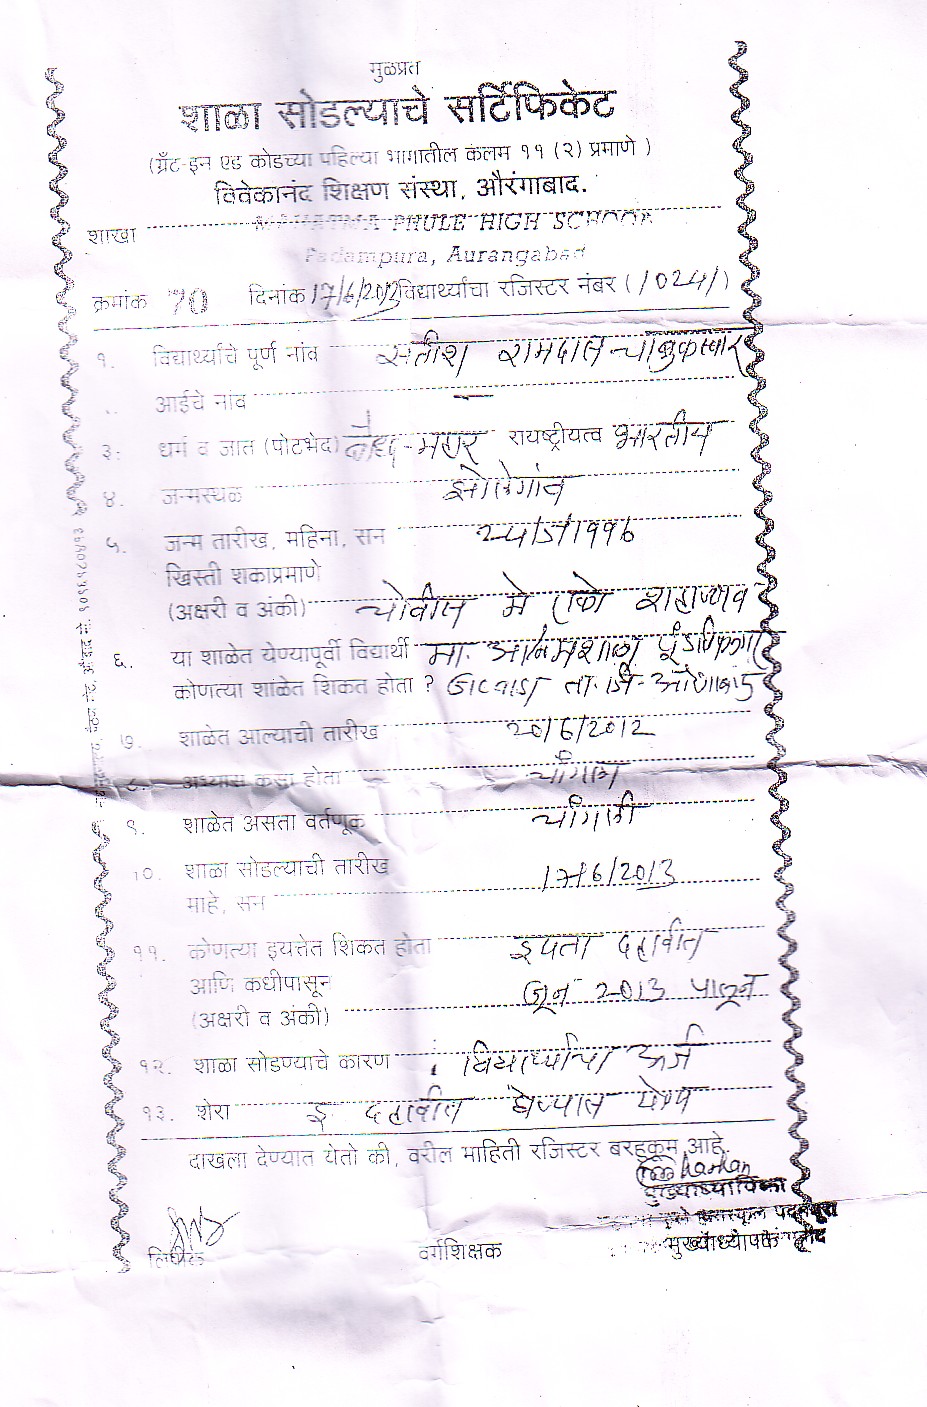 मुळप्रत
शाळा सोडल्याचे सर्टिफिकेट
(ग्रँट-इन एड कोडच्या पहिल्या भागातील कलम ११ (२) प्रमाणे )
विवेकानंद शिक्षण संस्था, औरंगाबाद.
शाखा PHULE HIGH SCHOOL
Padampura, Aurangabad
क्रमांक 70 दिनांक 17/6/2013 विद्यार्थ्याचा रजिस्टर नंबर (1024/)
१. विद्यार्थ्याचे पूर्ण नांव सतीश रामदास चाबुकस्वार
आईचे नांव —
३. धर्म व जात (पोटभेद) बौद्ध-महार रायष्ट्रीयत्व भारतीय
४. जन्मस्थळ झोलेगांव
५. जन्म तारीख, महिना, सन २४/५/१९९६
ख्रिस्ती शकाप्रमाणे
(अक्षरी व अंकी) चोवीस मे एको शहाण्णव
६. या शाळेत येण्यापूर्वी विद्यार्थी मा. आश्रमशाळा
कोणत्या शाळेत शिकत होता ? ता.जि-औरंगाबाद
७. शाळेत आल्याची तारीख 20/6/2012
८. अभ्यास कसा होता चांगला
९. शाळेत असता वर्तणूक चांगली
१०. शाळा सोडल्याची तारीख 17/6/2013
माहे, सन
११. कोणत्या इयत्तेत शिकत होता इयत्ता दहावीत
आणि कधीपासून जून 2013 पासून
(अक्षरी व अंकी)
१२. शाळा सोडण्याचे कारण विद्यार्थ्याचा अर्ज
१३. शेरा इ दहावीत घेण्यास योग्य
दाखला देण्यात येतो की, वरील माहिती रजिस्टर बरहुकूम आहे.
मुख्याध्यापिका
लिपीक वर्गशिक्षक मुख्याध्यापक